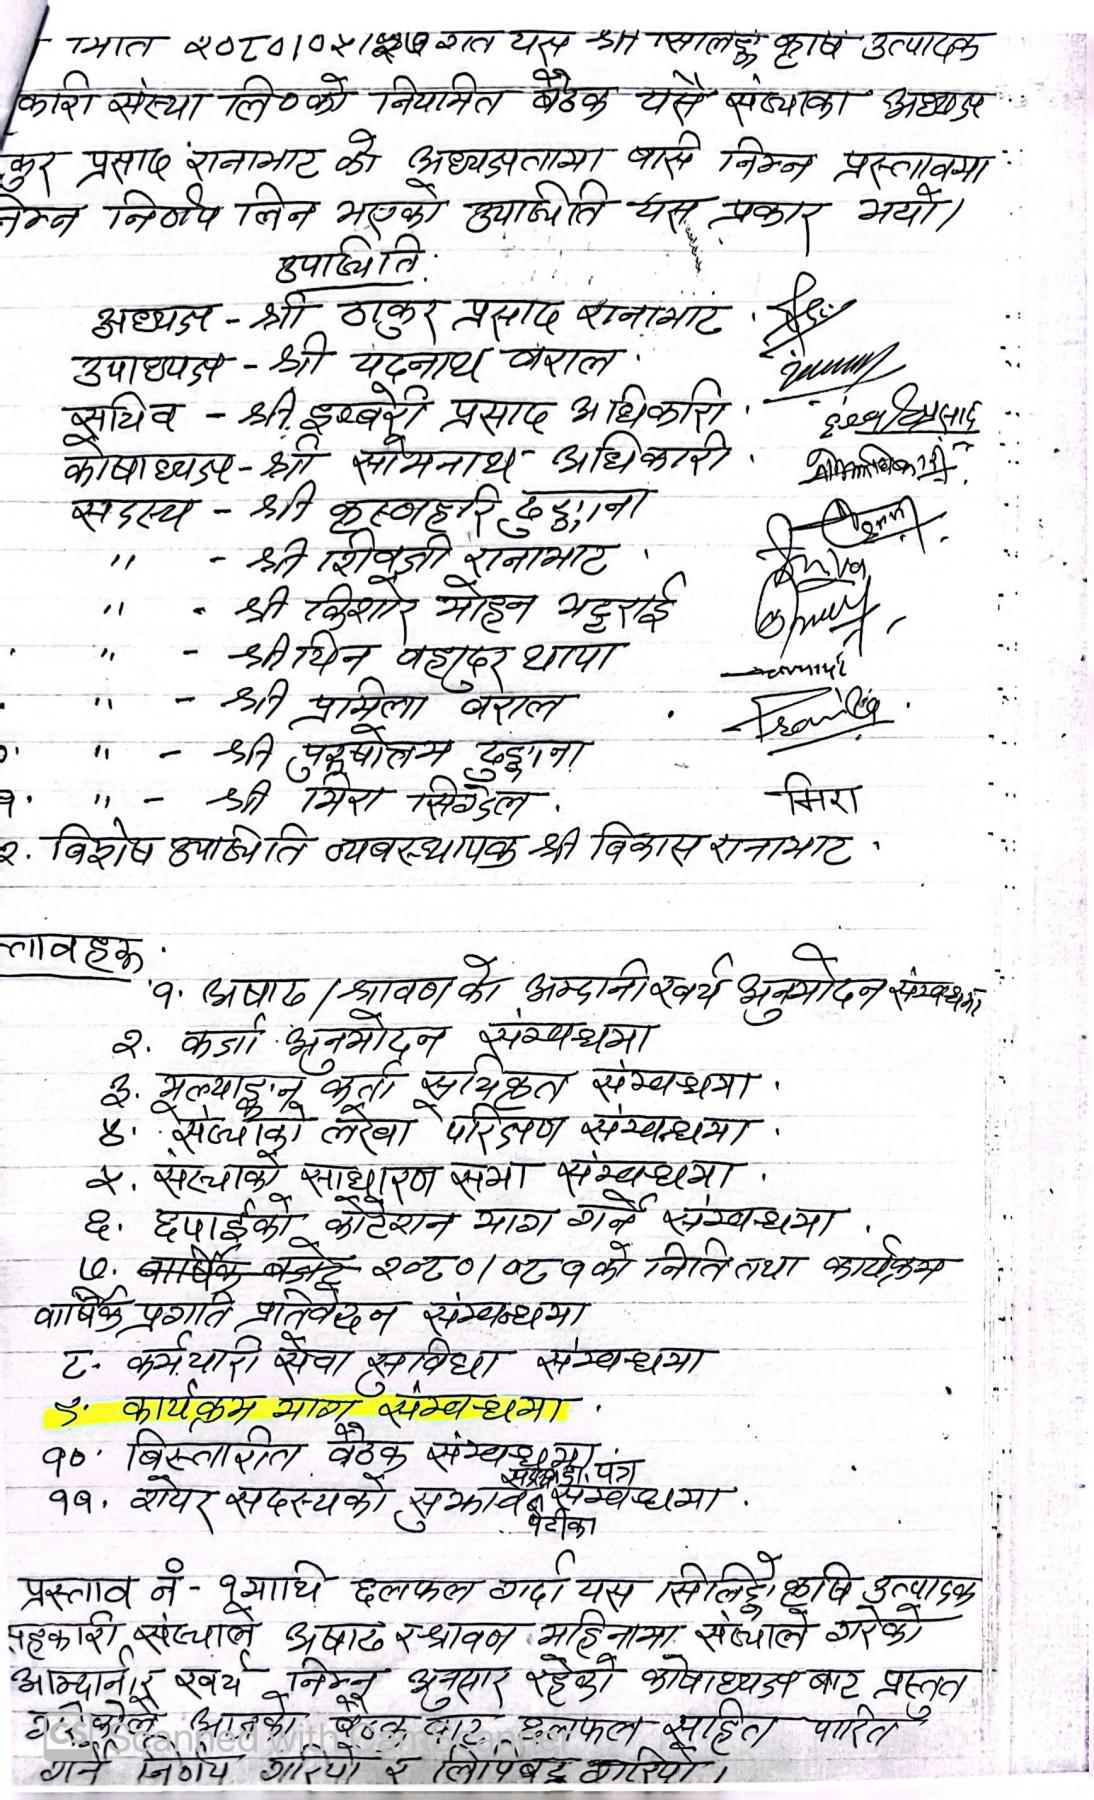 मिति २०८०।०५।२७ गते यस श्री सिलिङ्गे कृषि उत्पादक
कारी संस्था लि०को नियमित बैठक यसै संस्थाका अध्यक्ष
कुर प्रसाद रानाभाट को अध्यक्षतामा बसि निम्न प्रस्तावमा
निम्न निर्णय लिन भएको उपस्थिति यस प्रकार भयो।
उपस्थिति
अध्यक्ष - श्री ठाकुर प्रसाद रानाभाट
उपाध्यक्ष - श्री यदनाथ बराल
सचिव - श्री इश्वरी प्रसाद अधिकारी
कोषाध्यक्ष - श्री सोमनाथ अधिकारी
सदस्य - श्री कृस्णहरि ढुङ्गाना
" - श्री शिवजी रानाभाट
" - श्री किशोर मोहन भट्टराई
" - श्री चिन बहादुर थापा
" - श्री प्रमिला बराल Pramila
" - श्री पुरुषोत्तम ढुङ्गाना
१. " - श्री मिरा सिग्देल मिरा
२. विशेष उपस्थिति व्यवस्थापक श्री विकास रानाभाट
स्तावहरू
१. अषाढ / श्रावण को अम्दानी खर्च अनुमोदन संम्वन्धमा
२. कर्जा अनुमोदन संम्वन्धमा
३. मूल्याङ्कन कर्ता सूचिकृत संम्वन्धमा
४. संस्थाको लेखा परिक्षण संम्वन्धमा
५. संस्थाको साधारण सभा संम्वन्धमा
६. छपाईको कोटेशन माग गर्ने संम्वन्धमा
७. वार्षिक बजेट २०८०/०८१को निति तथा कार्यक्रम
वार्षिक प्रगति प्रतिवेदन संम्वन्धमा
८. कर्मचारी सेवा सुविधा संम्वन्धमा
९. कार्यक्रम माग संम्वन्धमा
१०. बिस्तारीत बैठक संम्वन्धमा
११. शेयर सदस्यको सुझाव पेटीका संम्वन्धमा
प्रस्ताव नं - १ माथि छलफल गर्दा यस सिलिङ्गे कृषि उत्पादक
सहकारी संस्थाले अषाढ र श्रावण महिनामा संस्थाले गरेको
आम्दानी र खर्च निम्न अनुसार रहेको कोषाध्यक्ष बाट प्रस्तुत
गरेकोले आजको बैठक बाट छलफल सहित पारित
गर्ने निर्णय गरियो र लिपिबद्ध गरियो।
CS Scanned with CamScanner